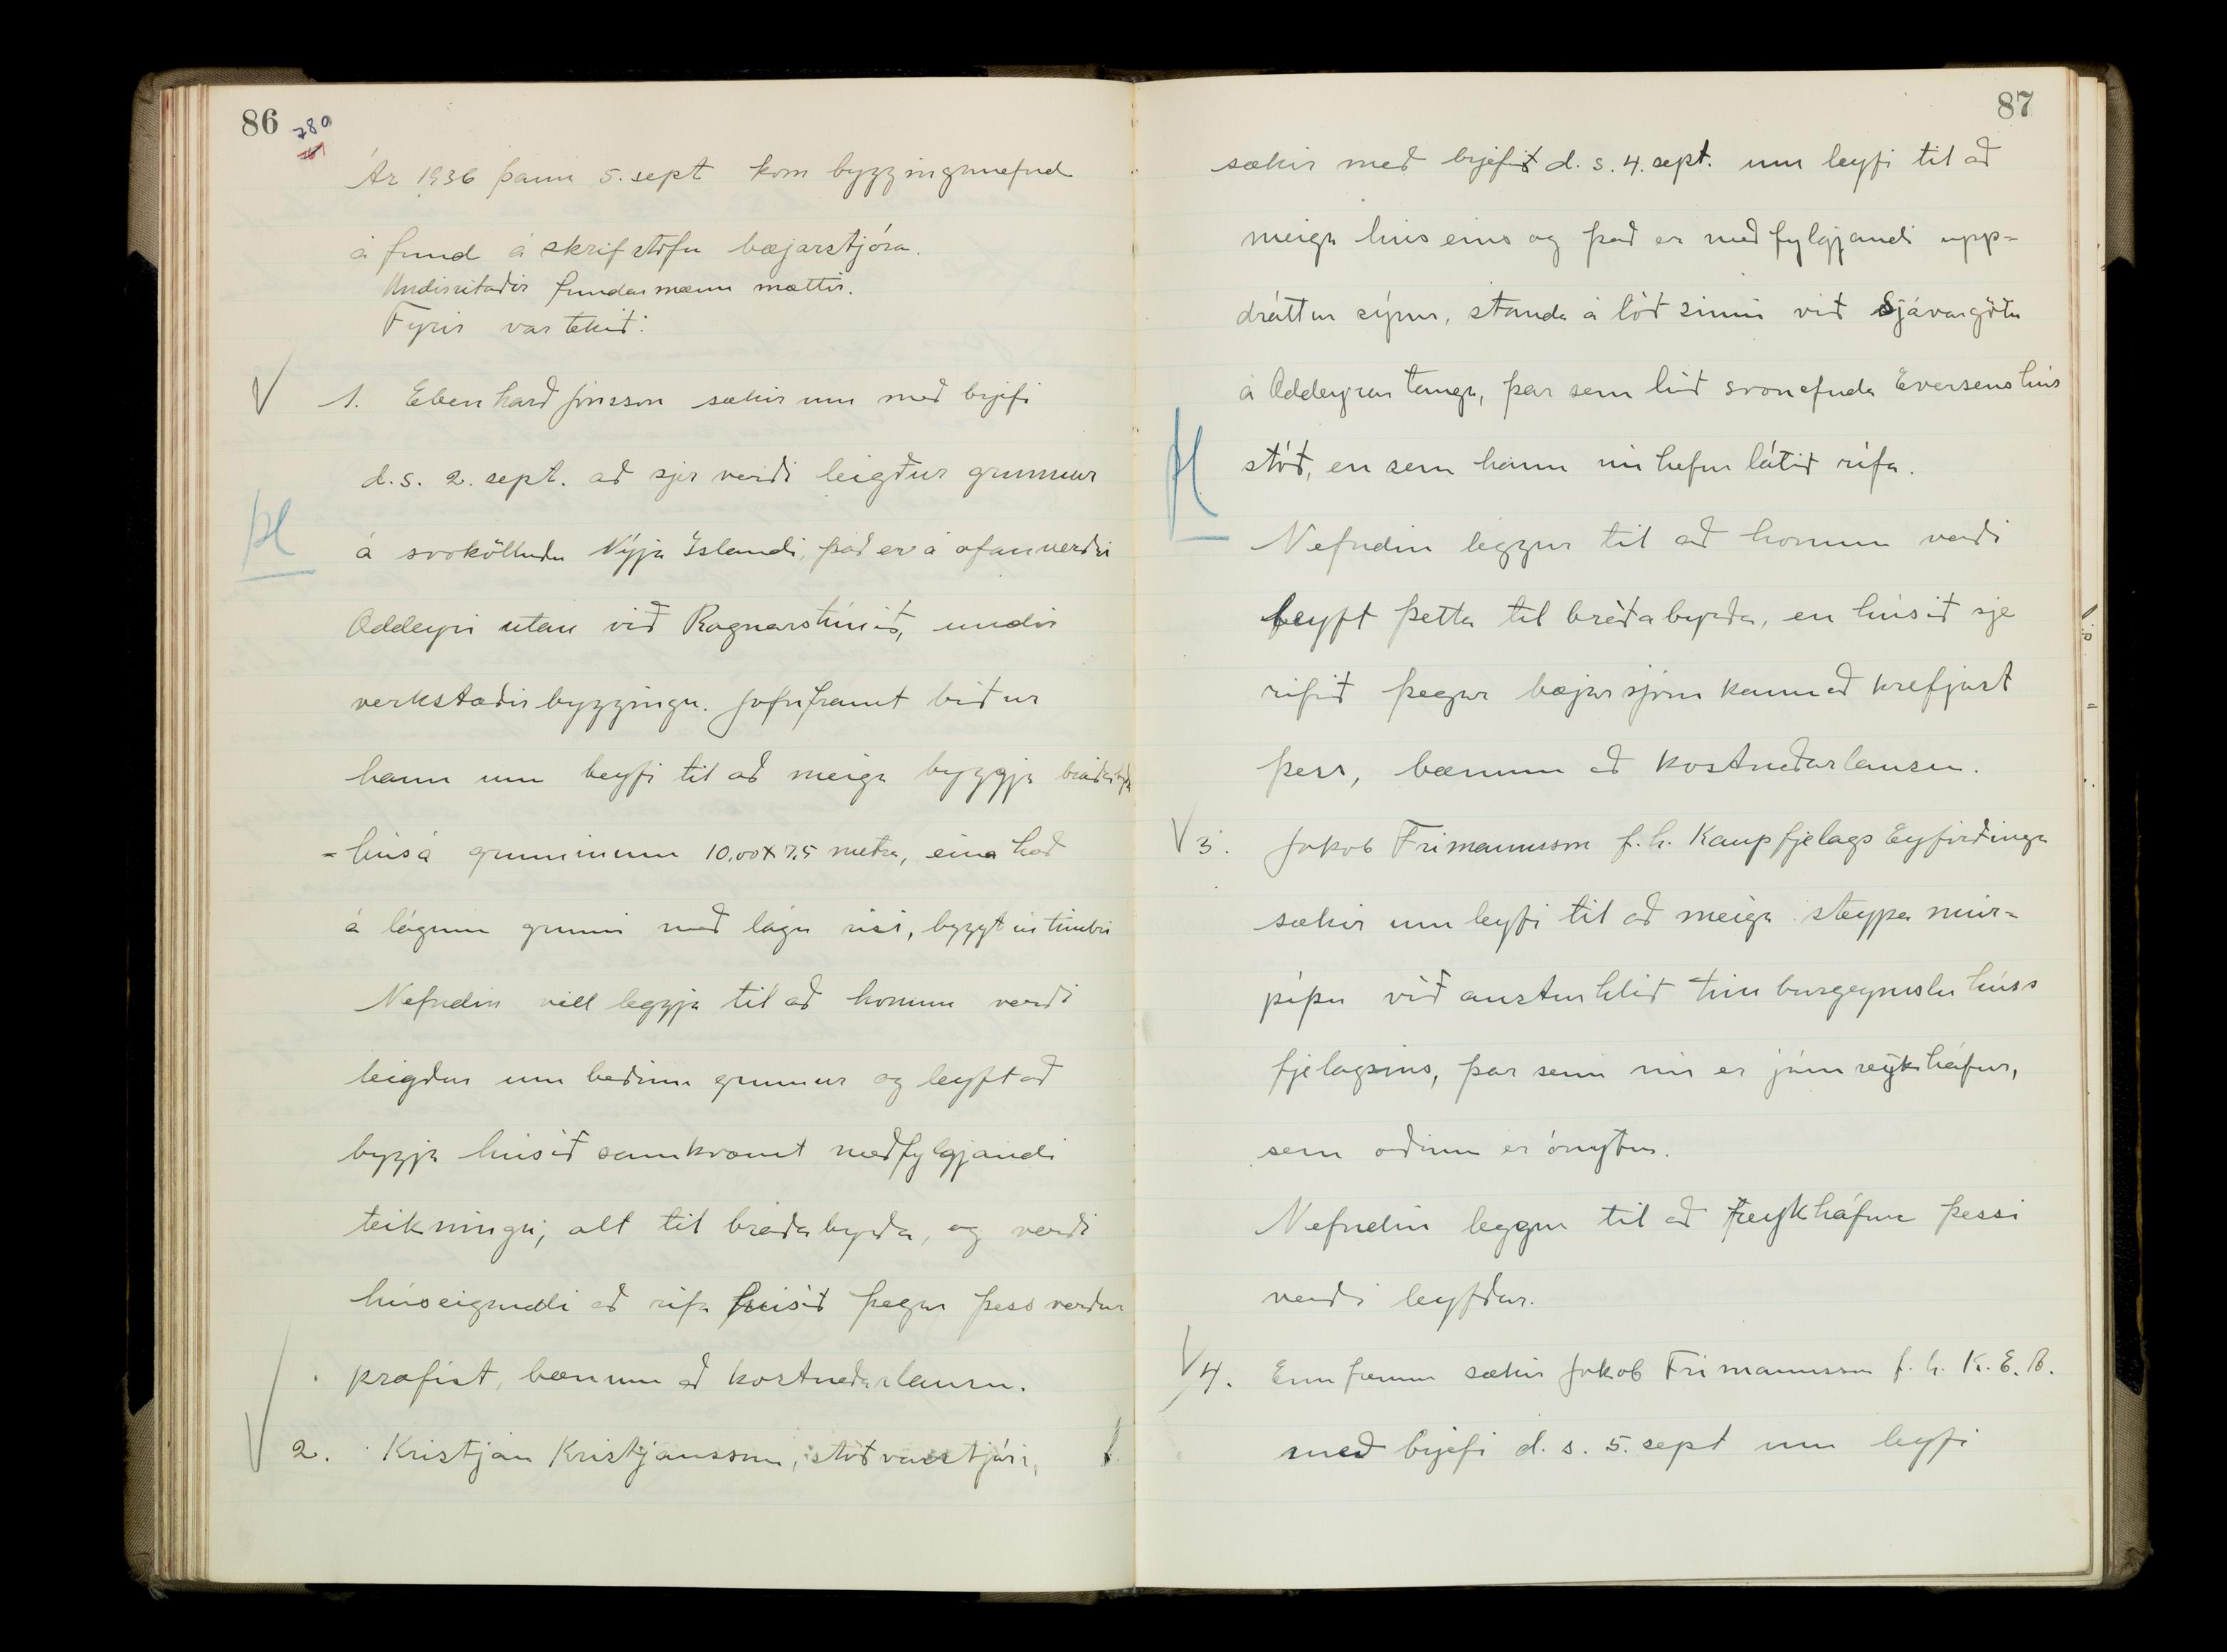 86
780
Ár 1936 þann 5. sept kom byggingnefnd
á fund á skrifstofu bæjarstjóra.
Undirritaðir fundarmenn mættir.
Fyrir var tekið:
1. Ebenharð Jónsson sækir um með brjefi
d.s. 2. sept. að sjer verði leigður grunnur
á svokölluðu Nýja Íslandi, það er á ofanverðri
Oddeyri utan við Ragnarshúsið, undir
verkstæðisbyggingu. Jafnframt biður
hann um leyfi til að meiga byggja bráðabyrgða
= hús á grunninum 10.00 x 7.5 metra, eina hæð
á lágum grunni með lágu risi, byggt úr timbri
Nefndin vill leggja til að honum verði
leigður um beðinn grunnur og leyft að
byggja húsið samkvæmt meðfylgjandi
teikningu; alt til bráðabyrða, og verði
húseigandi að rífa húsið þegar þess verður
krafist, bænum að kostnaðarlausu.
2. Kristján Kristjánsson, stöðvarstjóri,
87
sækir með brjefi d.s. 4. sept. um leyfi til að
meiga hús eins og það er meðfylgjandi upp=
dráttur sýnir, standa á lóð sinni við Sjávargötu
á Oddeyrartanga, þar sem hið svonefnda Eversenshús
stóð, en sem hann nú hefur látið rífa.
Nefndin leggur til að honum verði
leyft þetta til bráðabyrða, en húsið sje
rifið þegar bæjarstjórn kann að krefjast
þess, bænum að kostnaðarlausu.
3. Jakob Frímannsson f.h. Kaupfjelags Eyfirðinga
sækir um leyfi til að meiga steypa múr=
pípu við austurhlið timburgeymslu húss
fjelagsins, þar sem nú er járnreykháfur,
sem orðinn er ónýtur.
Nefndin leggur til að reykháfur þessi
verði leyfður.
4. Ennfremur sækir Jakob Frímannsson f.h. K.E.A.
með brjefi d.s. 5. sept um leyfi